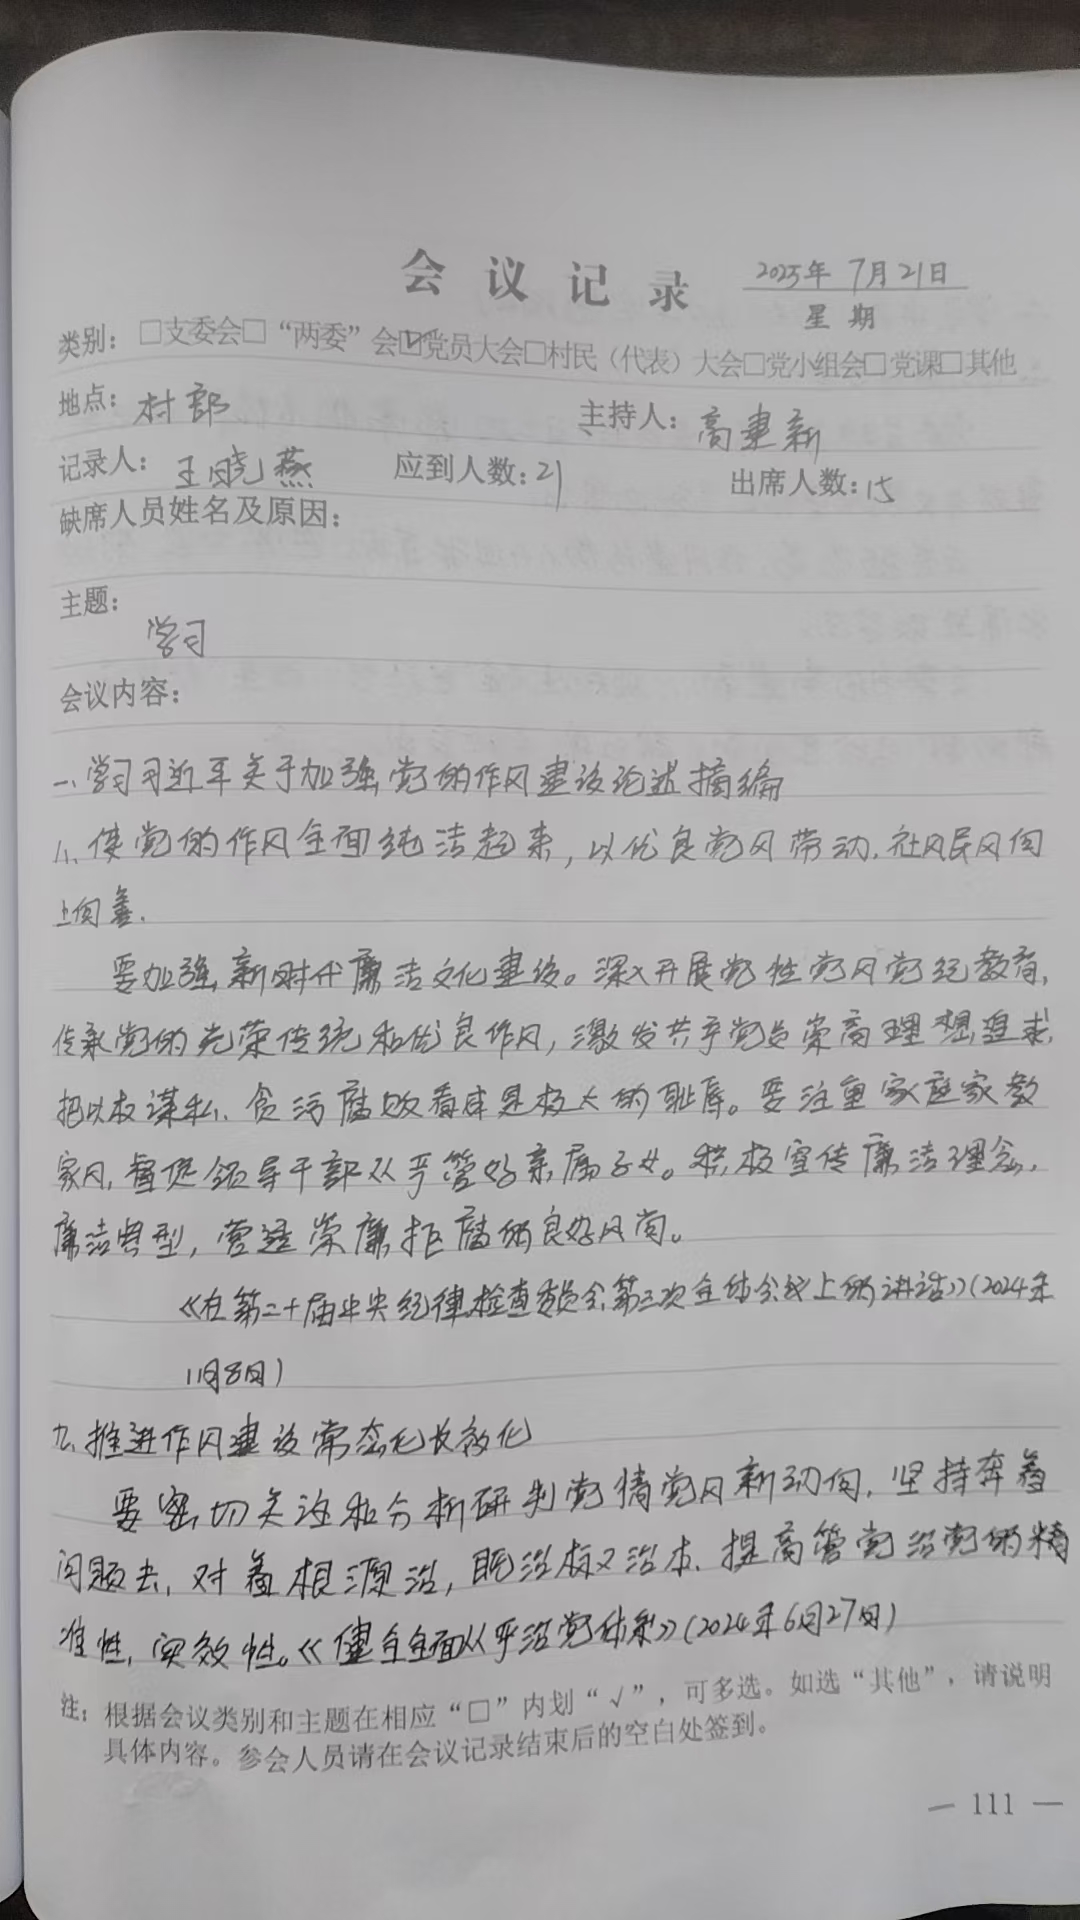 会议记录 2025年7月21日
星期
类别：□支委会□“两委”会☑党员大会□村民（代表）大会□党小组会□党课□其他
地点：村部 主持人：高建新
记录人：王晓燕 应到人数：21 出席人数：15
缺席人员姓名及原因：
主题：
学习
会议内容：
一、学习习近平关于加强党的作风建设论述摘编
八、使党的作风全面纯洁起来，以优良党风带动、社风民风向
上向善.
要加强新时代廉洁文化建设。深入开展党性党风党纪教育，
传承党的光荣传统和优良作风，激发共产党员崇高理想追求，
把以权谋私、贪污腐败看成是极大的耻辱。要注重家庭家教
家风，督促领导干部从严管好亲属子女。积极宣传廉洁理念、
廉洁典型，营造崇廉拒腐的良好风尚。
《在第二十届中央纪律检查委员会第三次全体会议上的讲话》（2024年
1月8日）
九、推进作风建设常态化长效化
要密切关注和分析研判党情党风新动向，坚持奔着
问题去，对着根源治，既治标又治本，提高管党治党的精
准性，实效性。《健全全面从严治党体系》（2024年6月27日）
注：根据会议类别和主题在相应“□”内划“√”，可多选。如选“其他”，请说明
具体内容。参会人员请在会议记录结束后的空白处签到。
— 111 —